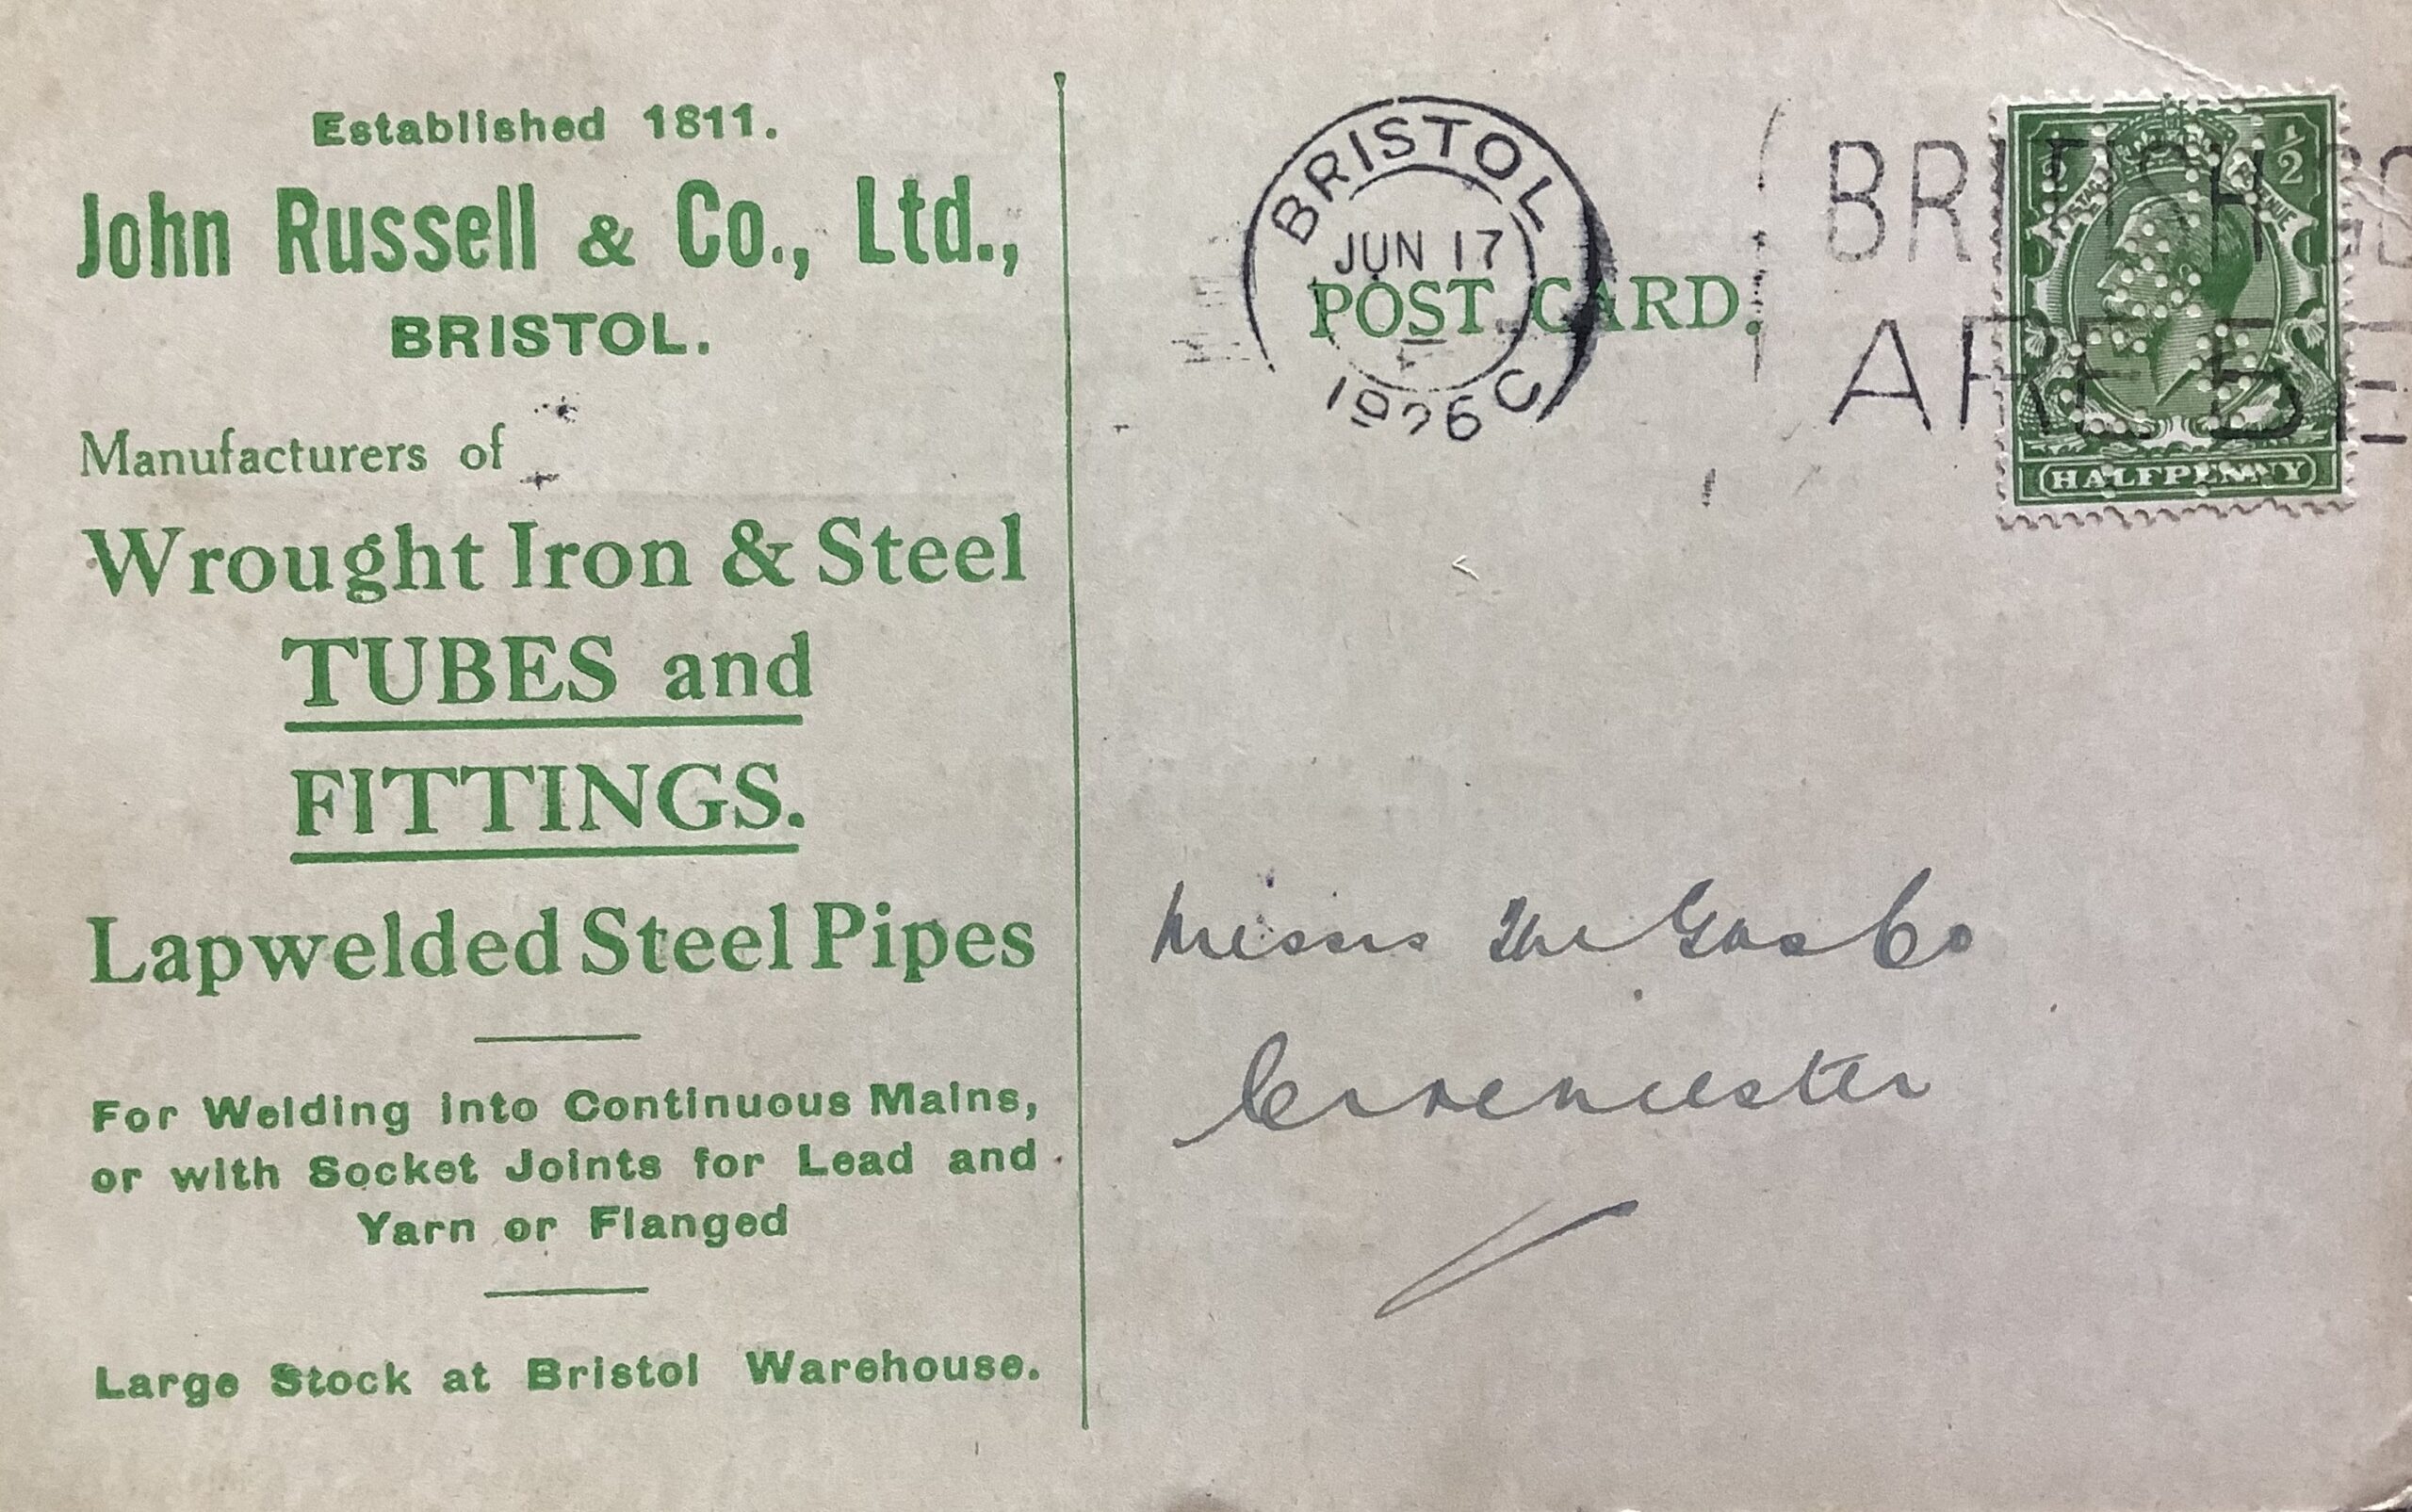 Established 1811.
John Russell & Co., Ltd.,
BRISTOL.
Manufacturers of
Wrought Iron & Steel
TUBES and
FITTINGS.
Lapwelded Steel Pipes
For Welding into Continuous Mains,
or with Socket Joints for Lead and
Yarn or Flanged
Large Stock at Bristol Warehouse.
BRISTOL
JUN 17
1926
POST CARD.
BRITISH GO
ARE BE
½ ½
HALFPENNY
Messrs The Gas Co
Cirencester